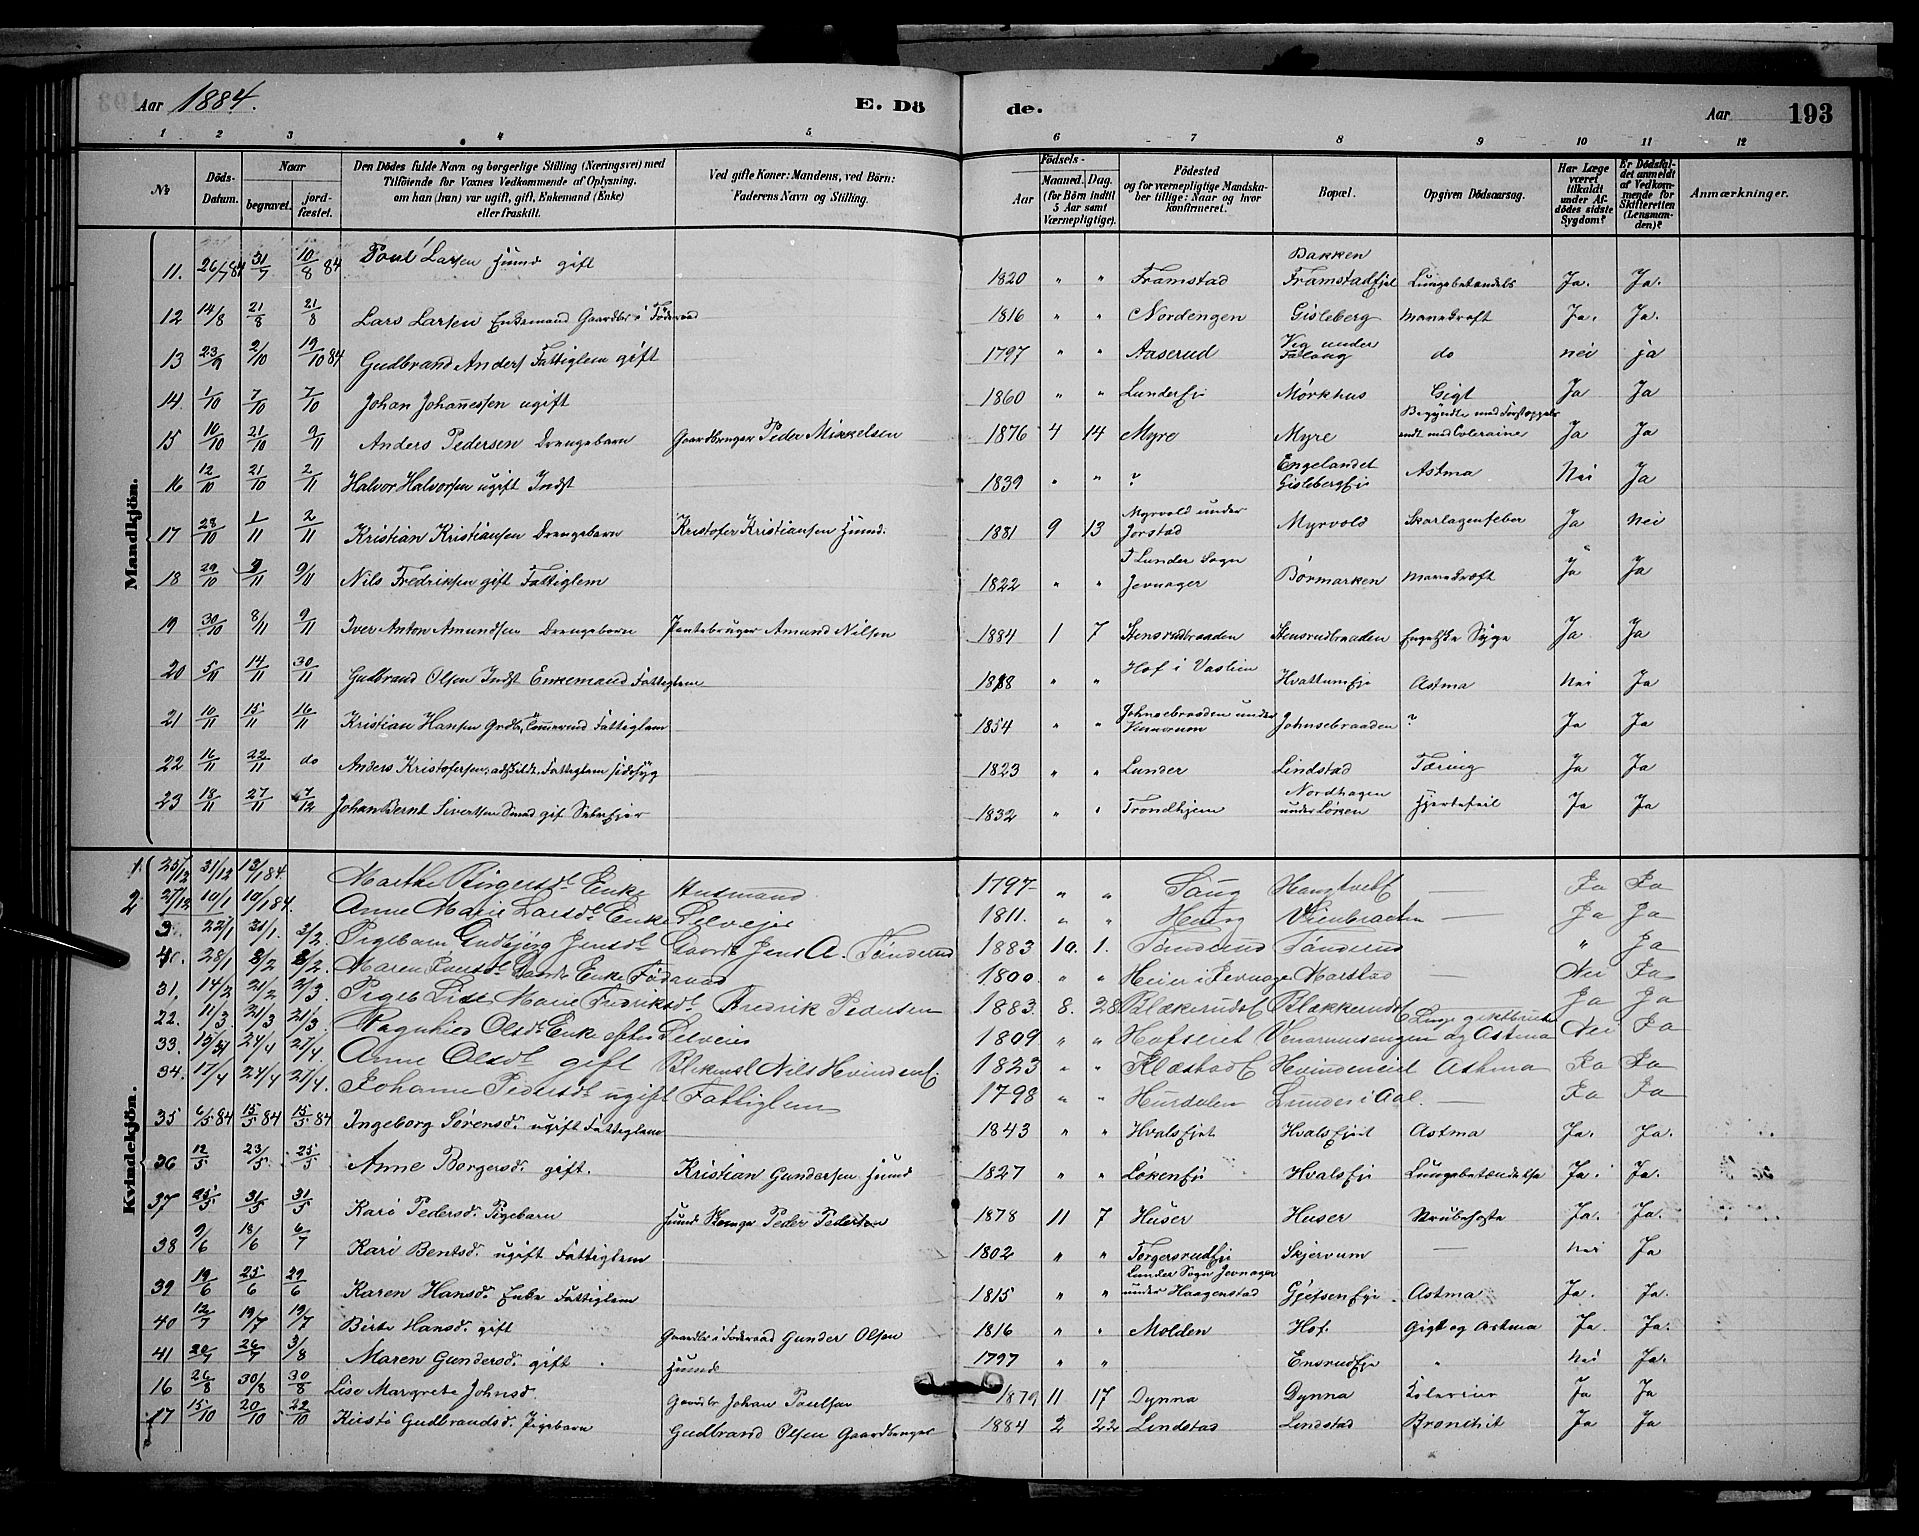 Aar 1884. E. Dö de. Aar 193
1 2 3 4 5 6 7 8 9 10 11 12
No
Döds-Datum.
Naar
begravet.
jordfæstet.
Den Dödes fulde Navn og borgerlige Stilling (Næringsvei) med
Tilföiende for Voxnes Vedkommende af Oplysning,
om han (hun) var ugift, gift, Enkemand (Enke)
eller fraskilt.
Ved gifte Koner: Mandens, ved Börn:
Faderens Navn og Stilling.
Födsels-
Aar
Maaned. Dag.
(for Börn indtil
5 Aar samt
Værnepligtige).
Födested
og for værnepligtige Mandska-
ber tillige: Naar og hvor
konfirmeret.
Bopæl.
Opgiven Dödsaarsag.
Har Læge
været
tilkaldt
under Af-
dödes sidste
Sygdom?
Er Dödsfal-
det anmeldt
af Vedkom-
mende for
Skifteretten
(Lensman-
den)?
Anmærkninger.
Mandkjön.
11. 26/7 84 31/7 10/8 84 Poul Larsen Huusmd gift 1820 " " Framstad Bakken Framstadeje Lungebetændels Ja. Ja.
12 14/8 21/8 21/8 Lars Larsen Enkemand Gaardbr i Föderaad 1816 " " Nordengen Gisleberg Marsdröft Ja. Ja.
13 23/9 2/10 19/10 84 Gudbrand Anders Fattiglem gift 1797 " " Aaserud Vig under do nei ja
14 1/10 7/10 7/10 Johan Johannessen ugift 1860 " " Lunderei Mørkhus Gigt Ja Ja
15 10/10 21/10 9/11 Anders Pedersen Drengebarn Gaardbruger Peder Mikkelsen 1876 4 14 Myre Myre Begyndte med Forstoppels endt med Coleraine Ja Ja
16 12/10 21/10 2/11 Halvor Halvorsen ugift Indst 1839 " " ? Engelandet Gislebergeie Astma Nei Ja
17 28/10 1/11 2/11 Kristian Kristiansen Drengebarn Kristofer Kristiansen Huusmd. 1881 9 13 Myrvold under Jorstad Myrvold Skarlagensfeber Ja Nei
18 29/10 9/11 9/11 Nils Fredriksen gift Fattiglem 1822 " " I Lunder Sogn Jevnager Børmarken Ja Ja
19 30/10 8/11 9/11 Iver Anton Amundsen Drengebarn Amund Nilsen 1884 1 7 Stensrudbraaden Stensrudbraaden Engelske Syge Ja Ja
20 5/11 14/11 30/11 Gudbrand Olsen Indst Enkemand Fattiglem 1818 " " Hof i Hvattumeje Astma Nei Ja
21 10/11 15/11 16/11 Kristian Hansen Fattiglem 1854 " " Johnsebraaden under Johnsebraaden ? Ja Ja
22 16/11 22/11 do Anders Kristofersen adskildt Fattiglem 1823 " " Lunder Lindstad Tæring Ja Ja
23 18/11 27/11 7/12 Johan Bernt Sivertsen Smed gift 1832 " " Trondhjem Nordhagen under Løken Hjertefeil Ja Ja
Kvindekjön.
1. 25/12 31/12 13/1 84. Marthe Børgersd. Enke Husmand 1797 " " Saug — Ja Ja
2 27/12 10/1 10/1 84. Anne Marie Larsd. Enke Selveje 1811. " " Haug — Ja Ja
3. 22/1 31/1. 3/2. Pigebarn Gudbjørg Jensd. Gaardb. Jens A. Tønderud 1883 10. 1. Tønderud Tønderud " Ja
40. 28/1 8/2 8/2. Maren Enke Føderaad 1800. " " Heier i Jevnage Marstad — Nei Ja
31. 14/2 21/2 2/3. Pigeb Lise Marie Fredriksd. Fredrik Pedersen 1883. 8. 28 Blækerudsf Blækkerudsf Ja Ja
22. 11/3 21/3 21/3. Ragnhild Olsd. Enke efter Selveier 1809. " " Hofseiet Venarumsengen og Astma Nei Ja
33. 24/4 27/4. Anne Olsd. gift Nils 1823 " " Klæstad Astma Ja Ja
34. 17/4 24/4 27/4. Johanne Pedersd. ugift Fattiglem 1798 " " Hurdalen Lunder i Aal. — Ja Ja
35 6/5 84 15/5 84 15/5 84 Ingeborg Sørensd. ugift Fattiglem 1843 " " Hvalsejet Hvalsejet Astma Ja. Ja.
36 12/5 23/5 25/5 Anne Borgersd. gift. Kristian Gundersen Huusmd 1827 " " Løkeneje Hvalseje Lungebetændelse Ja. Ja.
37 25/5 31/5 31/5 Kari Pedersd. Pigebarn Peder Pedersen 1878 11 7 Huser Huser Strubehoste Ja. Ja.
38 9/6 18/6 6/7 Kari Bentsd. ugift Fattiglem 1802 " " Torgersrudeje Skjervum — Nei Ja
39 19/6 25/6 29/6 Karen Hansd. Enke Fattiglem 1815 " " Lunder Sogn Jevnager under Haagenstad Gjefseneje Astma Ja. Ja.
40 12/7 19/7 19/7 Birte Hansd. gift Gaardbr i Føderaad Gunder Olsen 1816 " " Molden Hof. Gigt og Astma Ja. Ja.
41 20/7 26/7 3/8 Maren Gundersd. gift Huusmd 1797 " " Ensrudeje " Nei Ja.
16 26/8 30/8 30/8 Lise Margrete Johnsd. Gaardbr Johan Poulsen 1879 11 17 Dynna Dynna Ja Ja
17 15/10 20/10 22/10 Kristi Gudbrandsd. Pigebarn Gudbrand Olsen Gaardbruger 1884 2 22 Lindstad Lindstad Bronchit Ja Ja